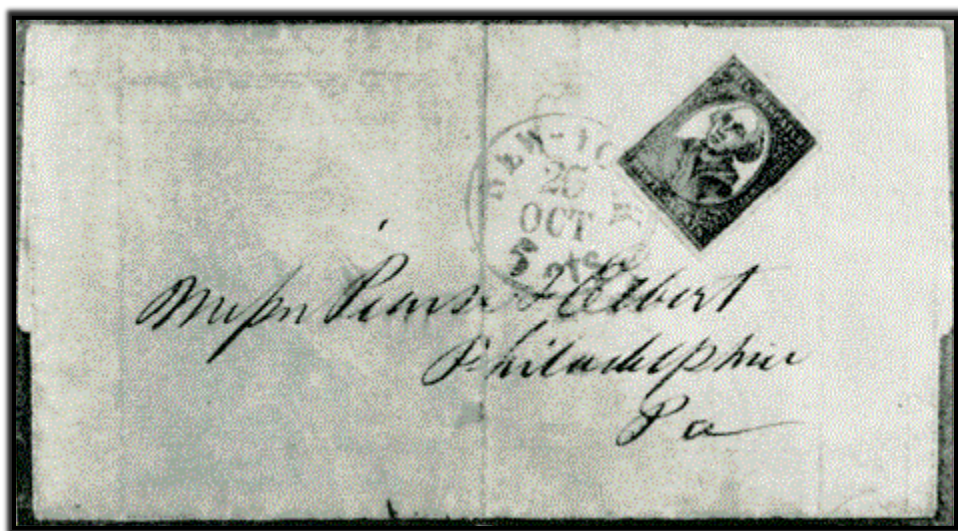 NEW-YORK
OCT
5 cts
Messrs Pearse & Elbert
Philadelphia
Pa